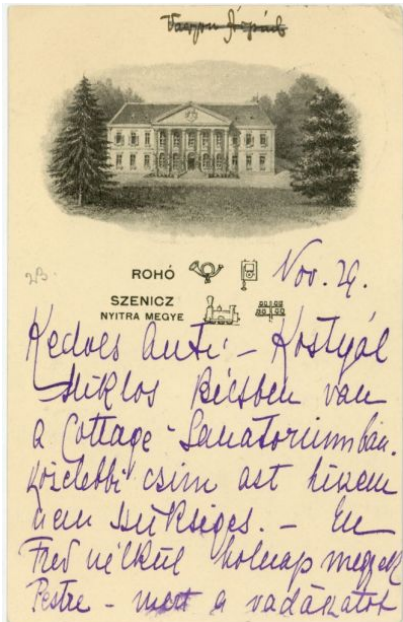 ROHÓ
Nov. 29.
SZENICZ
NYITRA MEGYE
Kedves Anti – Kostyál
Miklos Bécsben van
a Cottage-Sanatoriumban.
közelebbi czim azt hiszem
nem szükséges. – En
Fred nélkül holnap megyek
Pestre – mert a